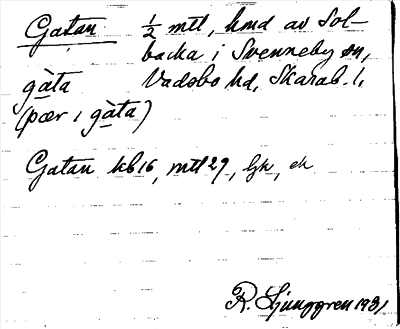 Gatan ½ mtl, hmd av Sol-
backa i Svenneby sn,
gàta Vadsbo hd, Skarab. l,
(pær i gàta)
Gatan kb 16, mtl 29, Gk, ek
R. Ljunggren 1931